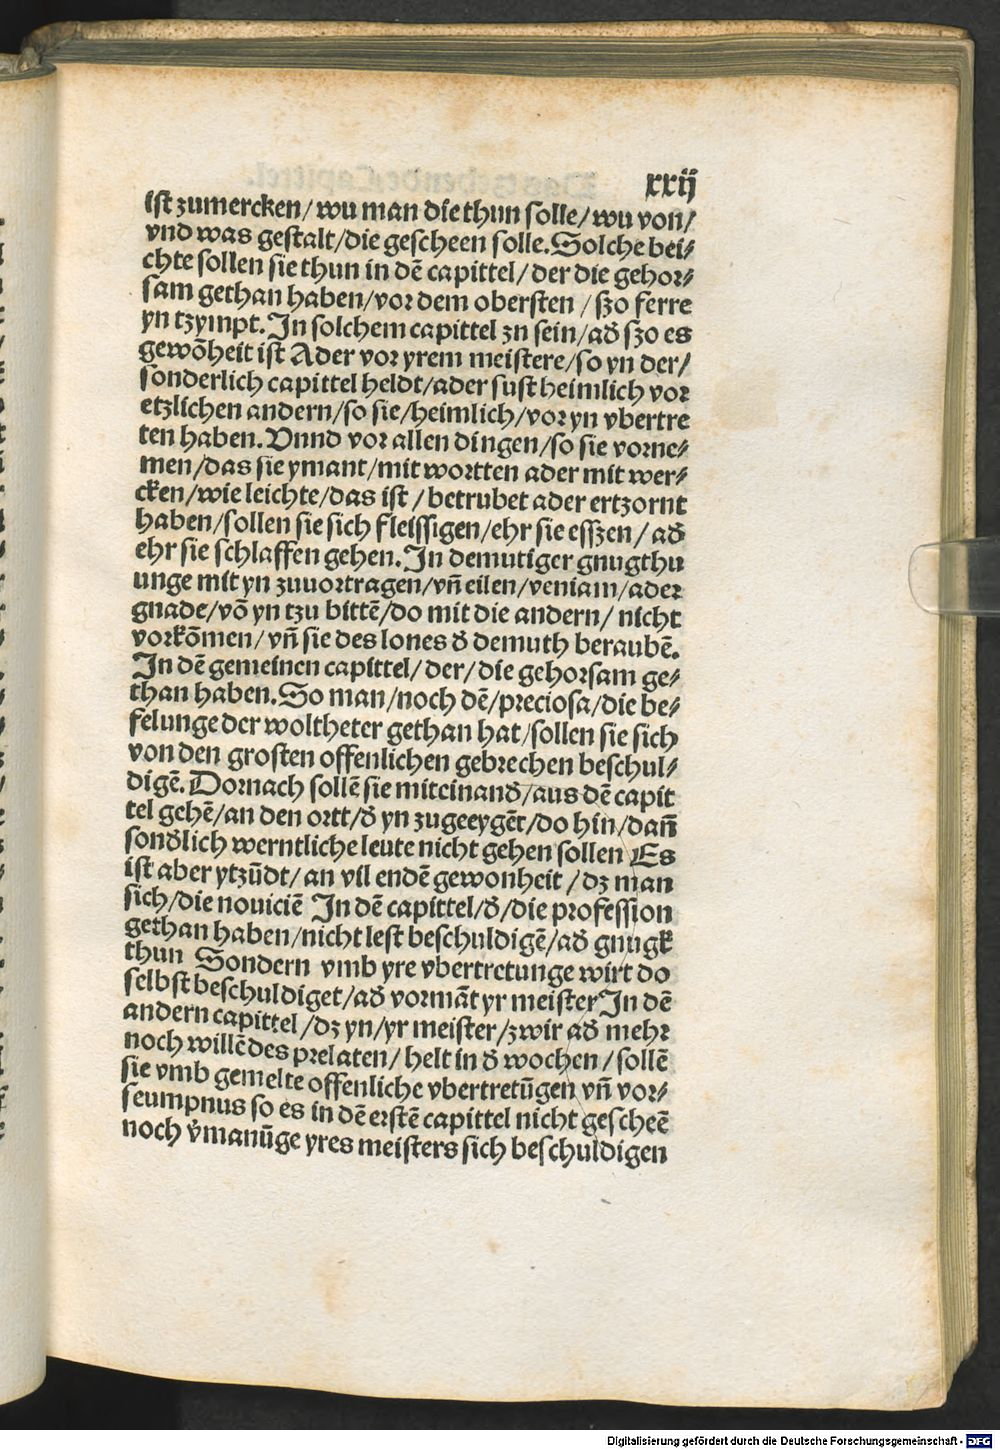 xxij
ist zumercken/ wu man die thun solle/ wu von/
vnd was gestalt/die gescheen solle.Solche bei⸗
chte sollen sie thun in dē capittel/ der die gehor⸗
sam gethan haben/vor dem obersten / szo ferre
yn tzympt.In solchem capittel zn sein/ad̕ szo es
gewōheit ist Ader vor yrem meistere/so yn der/
sonderlich capittel heldt/ader sust heimlich vor
etzlichen andern/so sie/heimlich/vor yn vbertre
ten haben.Vnnd vor allen dingen/so sie vorne⸗
men/das sie ymant/mit wortten ader mit wer⸗
cken/wie leichte/das ist / betrubet ader ertzornt
haben/sollen sie sich fleissigen/ehr sie esszen/ ad̕
ehr sie schlaffen gehen.In demutiger gnugthu
unge mit yn zuuortragen/vn̄ eilen/veniam/ader
gnade/vō yn tzu bittē/do mit die andern/ nicht
vorkōmen/ vn̄ sie des lones d̕ demuth beraubē.
In dē gemeinen capittel/ der/die gehorsam ge⸗
than haben.So man/noch dē/preciosa/die be⸗
felunge der woltheter gethan hat/sollen sie sich
von den grosten offenlichen gebrechen beschul⸗
digē.Dornach sollē sie miteinand̕/aus dē capit
tel gehē/an den ortt/d̕ yn zugeeygēt/do hin/dan̄
sond̕lich werntliche leute nicht gehen sollen Es
ist aber ytzūdt/an vil endē gewonheit /dz man
sich/die nouiciē In dē capittel/d̕/die profession
gethan haben/nicht lest beschuldigē/ad̕ gnugk
thun Sondern vmb yre vbertretunge wirt do
selbst beschuldiget/ad̕ vormāt yr meister In dē
andern capittel/dz yn/yr meister/zwir ad̕ mehr
noch willē des prelaten/ helt in d̕ wochen/sollē
sie vmb gemelte offenliche vbertretūgen vn̄ vor⸗
seumpnus so es in dē erstē capittel nicht gescheē
noch v̕manūge yres meisters sich beschuldigen
Digitalisierung gefördert durch die Deutsche Forschungsgemeinschaft - DFG